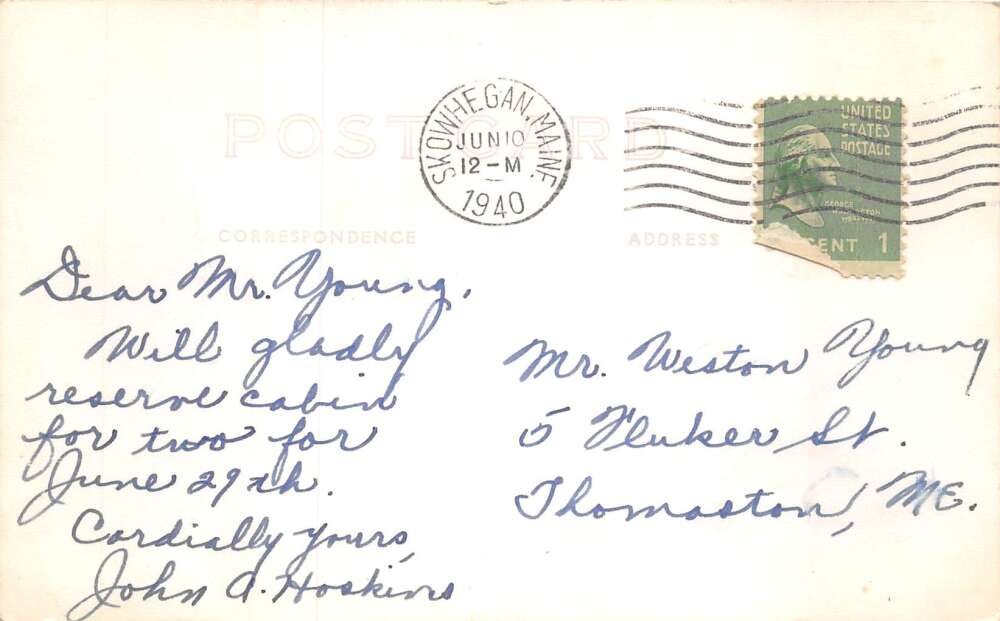 POST CARD
SKOWHEGAN, MAINE
JUN 10
12-M
1940
UNITED
STATES
POSTAGE
GEORGE
WASHINGTON
CENT 1
CORRESPONDENCE
ADDRESS
Dear Mr. Young,
Will gladly
reserve cabin
for two for
June 29th.
Cordially yours,
John A. Hoskins
Mr. Weston Young
5 Fluker St.
Thomaston, ME.